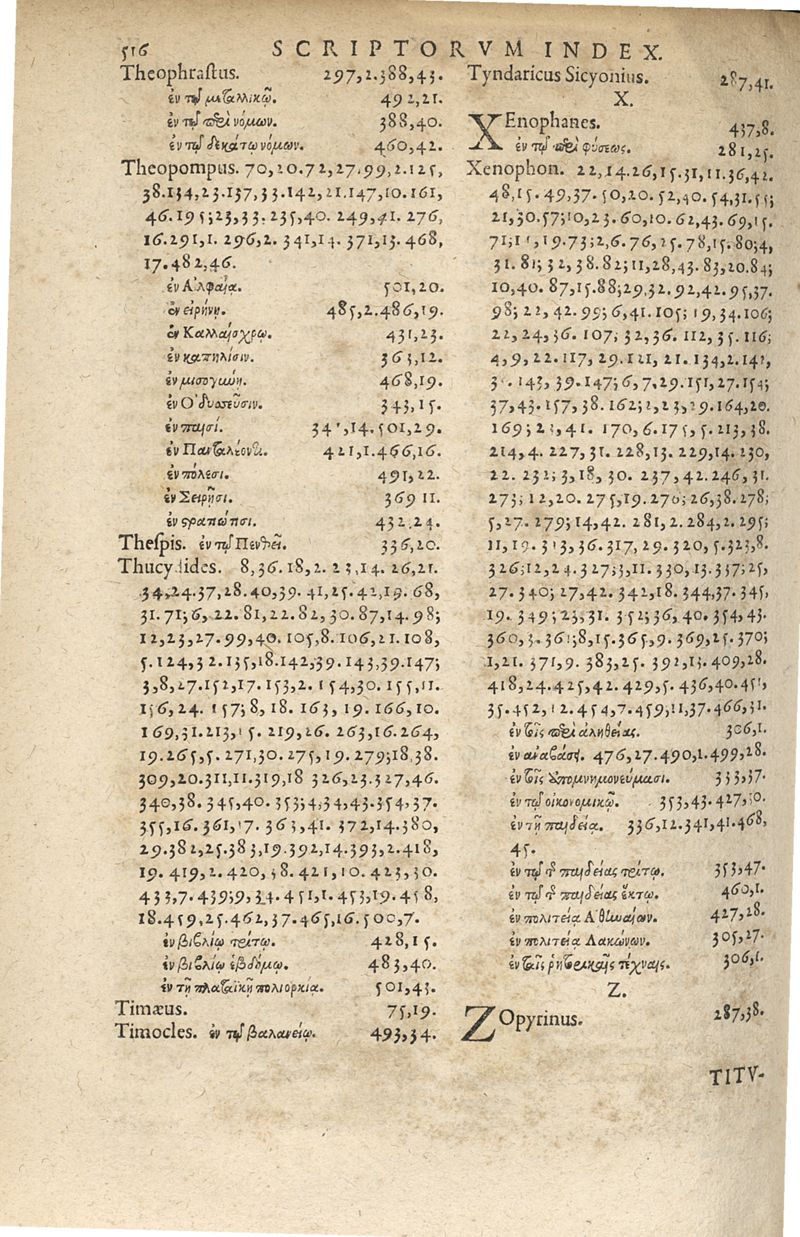 516 SCRIPTORVM INDEX.
Theophrastus. 297,2.388,43.
ἐν τῷ μεταλλικῷ. 492,21.
ἐν τῷ περὶ νόμων. 388,40.
ἐν τῷ δεκάτῳ νόμων. 460,42.
Theopompus. 70,20.72,27.99,2.125,
38.134,23.137,33.142,21.147,10.161,
46.195;23,33.235,40.249,41.276,
16.291,1.296,2.341,14.371,13.468,
17.482,46.
ἐν Ἀλθαίᾳ. 501,20.
ἐν εἰρήνῃ. 485,2.486,19.
ἐν Καλλαίσχρῳ. 431,23.
ἐν καπηλίσιν. 363,12.
ἐν 468,19.
ἐν Ὀδυσσεῦσιν. 343,15.
ἐν παισί. 14.501,29.
ἐν Πανταλέοντι. 421,1.466,16.
ἐν πόλεσι. 491,22.
ἐν Σειρῆσι. 369 11.
ἐν στρατιώτισι. 432.24.
Thespis. ἐν τῷ Πενθεῖ. 336,20.
Thucydides. 8,36.18,2.23,14.26,21.
34,24.37,28.40,39.41,25.42,19.68,
31.71;6,22.81,22.82,30.87,14.98;
12,23,27.99,40.105,8.106,21.108,
5.124,32.135,18.142,39.143,39.147;
3,8,27.152,17.153,2.154,30.155,11.
156,24.157;8,18.163,19.166,10.
169,31.213,15.219,26.263,16.264,
19.265,5.271,30.275,19.279;18,38.
309,20.311,11.319,18 326,23.327,46.
340,38.345,40.353;4,34,43.354,37.
355,16.361,17.363,41.372,14.380,
29.382,25.383,19.392,14.393,2.418,
19.419,2.420,38.421,10.423,30.
433,7.439;9,34.451,1.453,19.458,
18.459,25.462,37.465,16.500,7.
ἐν βιβλίῳ τρίτῳ. 428,15.
ἐν βιβλίῳ ἑβδόμῳ. 483,40.
ἐν τῇ πλαταϊκῇ πολιορκίᾳ. 501,43.
Timæus. 75,19.
Timocles. ἐν τῷ βαλανείῳ. 493,34.
Tyndaricus Sicyonius. 287,41.
X.
XEnophanes. 437,8.
ἐν τῷ περὶ φύσεως. 281,25.
Xenophon. 22,14.26,15.31,11.36,42.
48,15.49,37.50,20.52,40.54,31.55;
21,30.57;10,23.60,10.62,43.69,15.
71;11,19.73;2,6.76,25.78,15.80;4,
31.81;32,38.82;11,28,43.83,20.84;
10,40.87,15.88;29,32.92,42.95,37.
98;22,42.99;6,41.105;19,34.106;
22,24,36.107;32,36.112,35.116;
4,9,22.117,29.121,21.134,2.141,
143,39.147;6,7,29.151,27.154;
37,43.157,38.162;2,23,29.164,20.
169;23,41.170,6.175,5.213,38.
214,4.227,31.228,13.229,14.230,
22.232;3,18,30.237,42.246,31.
273;12,20.275,19.276;26,38.278;
5,27.279;14,42.281,2.284,2.295;
11,19.313,36.317,29.320,5.323,8.
326;12,24.327;3,11.330,13.337;25,
27.340;27,42.342,18.344,37.345,
19.349;23,31.352;36,40.354,43.
360,3.361;8,15.365,9.369,25.370;
1,21.371,9.383,25.392,13.409,28.
418,24.425,42.429,5.436,40.451,
35.452,12.454,7.459;11,37.466,31.
ἐν τοῖς περὶ ἀληθείας. 306,1.
ἐν ἀναβάσει. 476,27.490,1.499,28.
ἐν τοῖς ὑπομνημονεύμασι. 333,37.
ἐν τῷ οἰκονομικῷ. 353,43.427,30.
ἐν τῇ παιδείᾳ. 336,12.341,41.468,
45.
ἐν τῷ τῆς παιδείας τρίτῳ. 353,47.
ἐν τῷ τῆς παιδείας ἕκτῳ. 460,1.
ἐν πολιτείᾳ Ἀθηναίων. 427,28.
ἐν πολιτείᾳ Λακώνων. 305,27.
ἐν ταῖς ῥητορικαῖς τέχναις. 306,1.
Z.
ZOpyrinus. 287,38.
TITV-